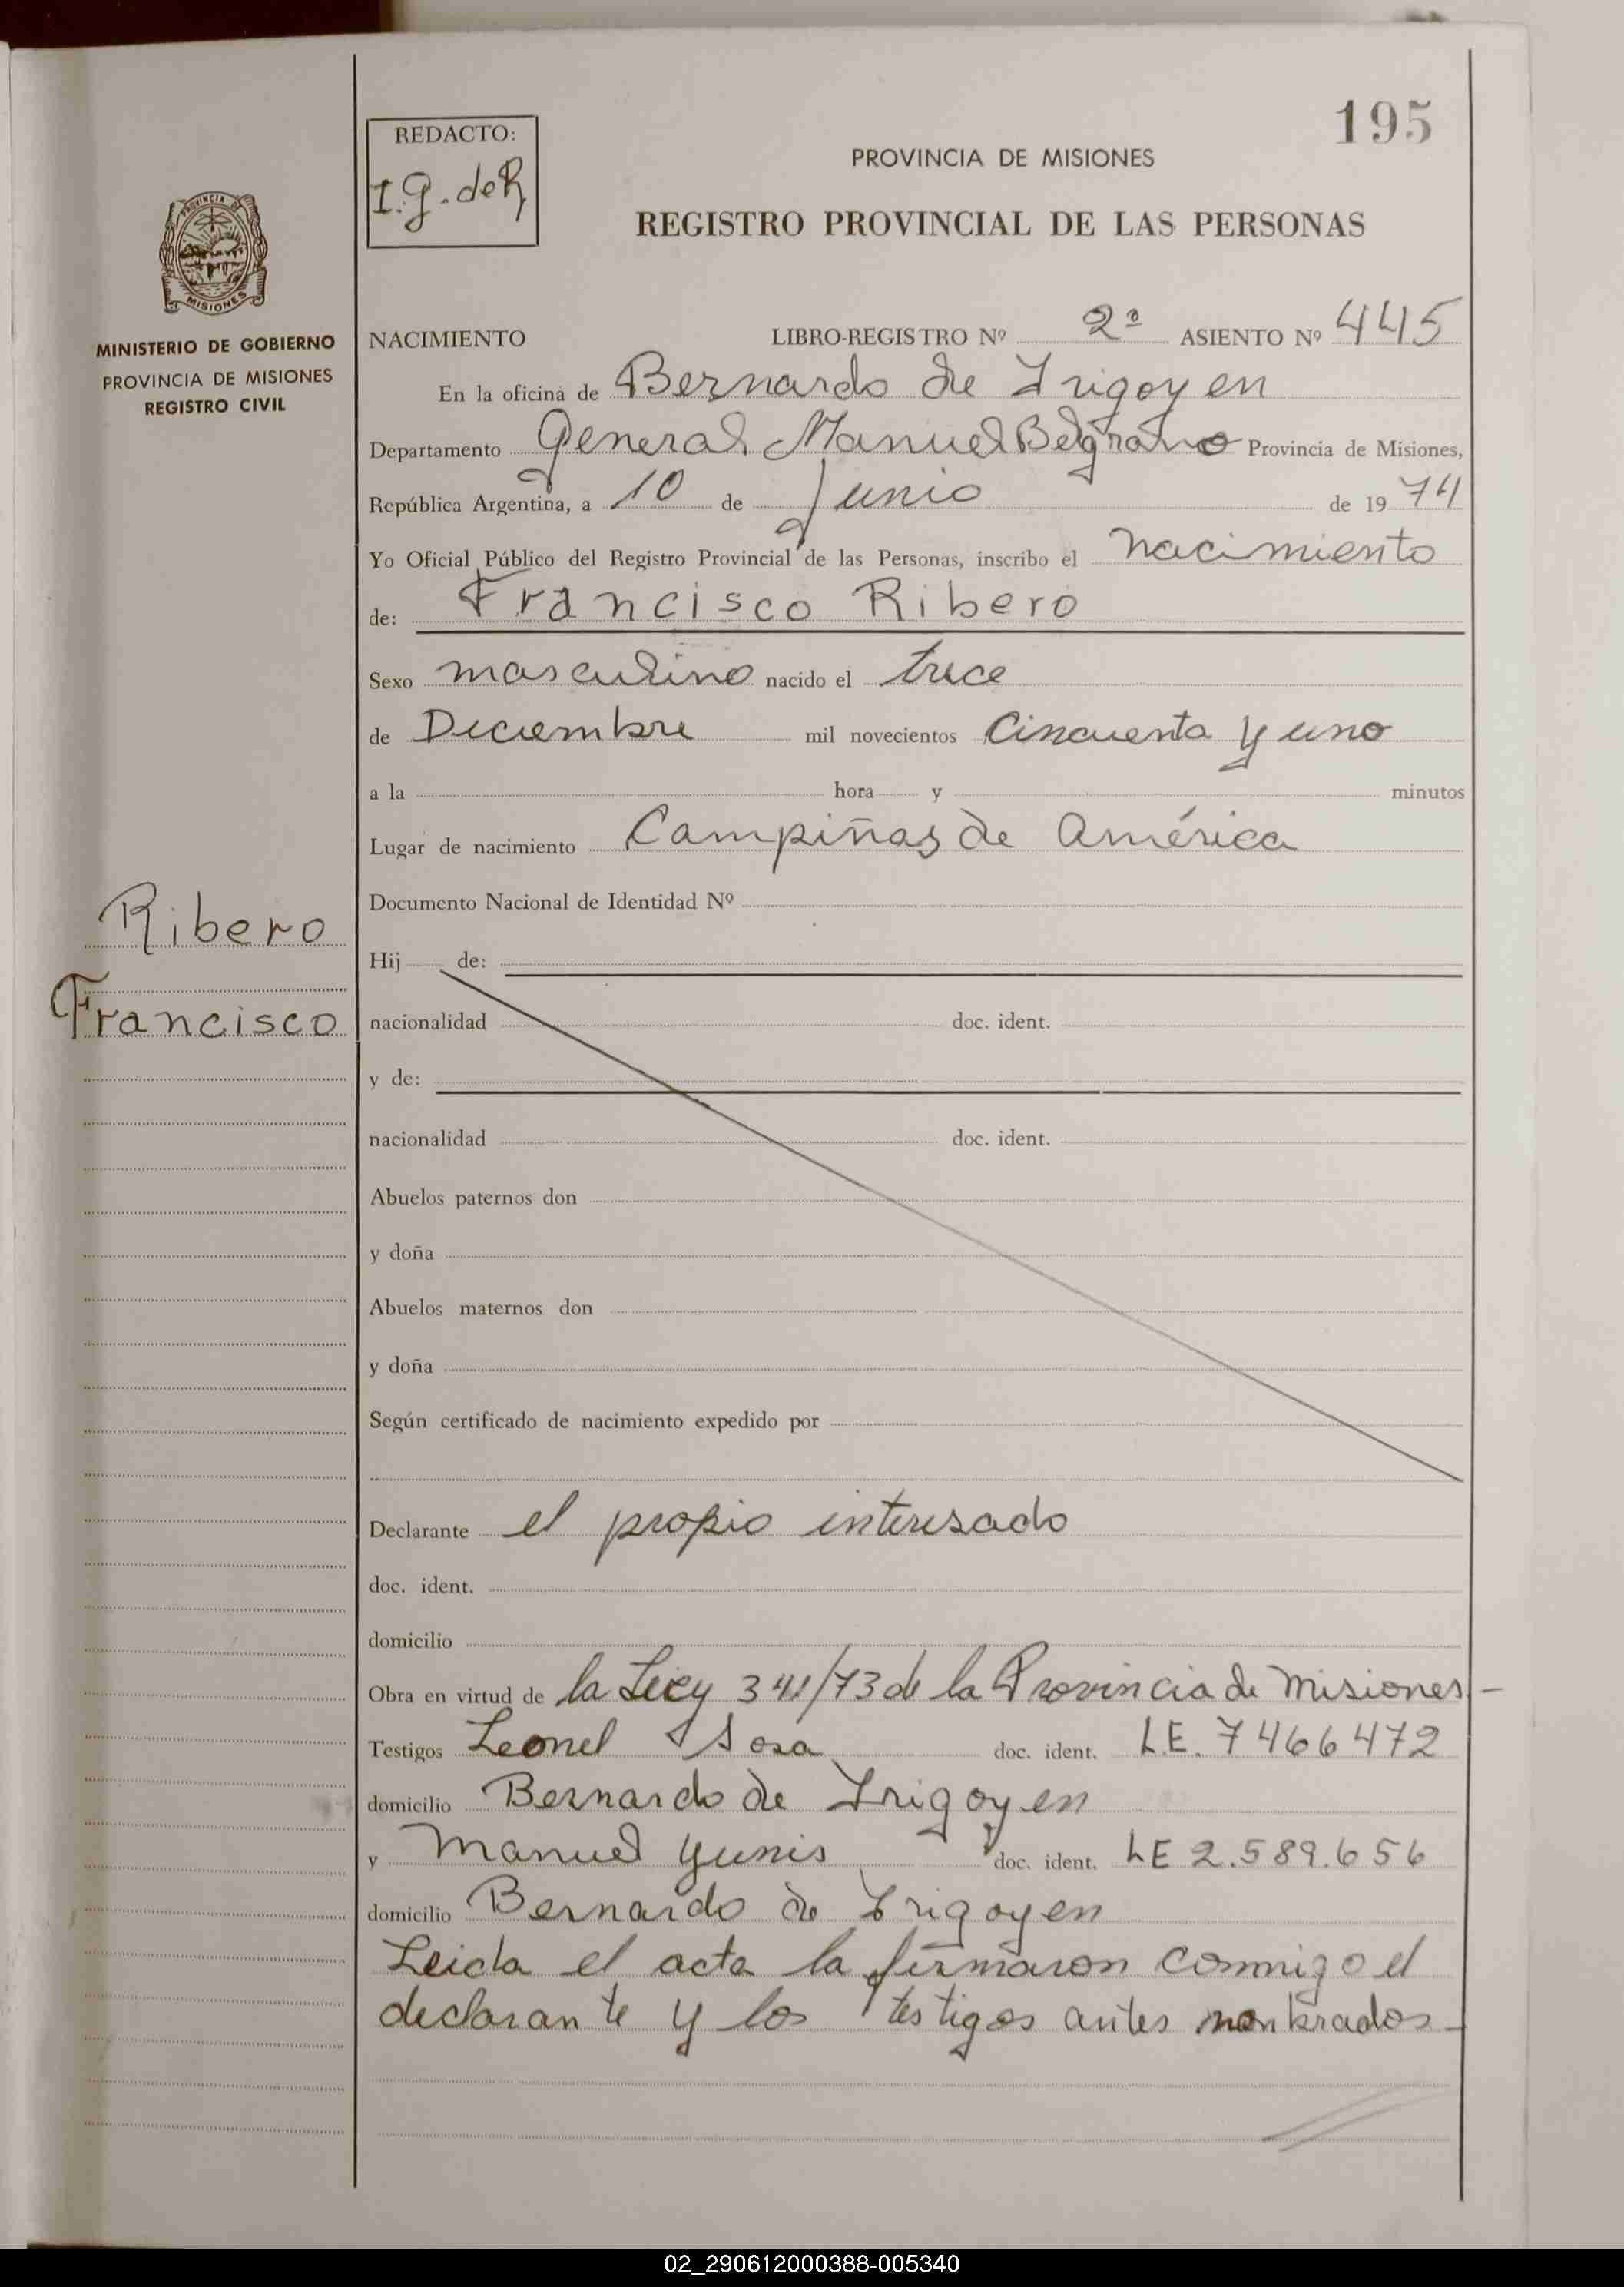 195
REDACTO:
I.g. de R
PROVINCIA DE MISIONES
REGISTRO PROVINCIAL DE LAS PERSONAS
PROVINCIA DE
MISIONES
MINISTERIO DE GOBIERNO
PROVINCIA DE MISIONES
REGISTRO CIVIL
NACIMIENTO LIBRO-REGISTRO Nº 2º ASIENTO Nº 445
En la oficina de Bernardo de Irigoyen
Departamento General Manuel Belgrano Provincia de Misiones,
República Argentina, a 10 de Junio de 1974
Yo Oficial Público del Registro Provincial de las Personas, inscribo el nacimiento
de: Francisco Ribero
Sexo masculino nacido el trece
de Deciembre mil novecientos Cincuenta y uno
a la hora y minutos
Lugar de nacimiento Campiñas de América
Documento Nacional de Identidad Nº
Ribero
Francisco
Hij de:
nacionalidad doc. ident.
y de:
nacionalidad doc. ident.
Abuelos paternos don
y doña
Abuelos maternos don
y doña
Según certificado de nacimiento expedido por
Declarante el propio interesado
doc. ident.
domicilio
Obra en virtud de la Ley 341/73 de la Provincia de Misiones-
Testigos Leonel Sosa doc. ident. L.E. 7466472
domicilio Bernardo de Irigoyen
y Manuel Yunis doc. ident. LE 2.589.656
domicilio Bernardo de Irigoyen
Leida el acta la firmaron conmigo el
declarante y los testigos antes nonbrados-
02_290612000388-005340